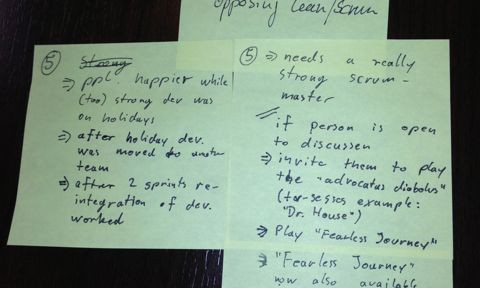 opposing Lean/Scrum
5
Strong
⇒ ppl. happier while
(too) strong dev was
on holidays
⇒ after holiday dev.
was moved to another
team
⇒ after 2 sprints re-
integration of dev.
worked
5 ⇒ needs a really
strong scrum-
master
if person is open
to discussen
⇒ invite them to play
the "advocatus diabolus"
example:
"Dr. House")
⇒ Play "Fearless Journey"
⇒ "Fearless Journey"
now also available